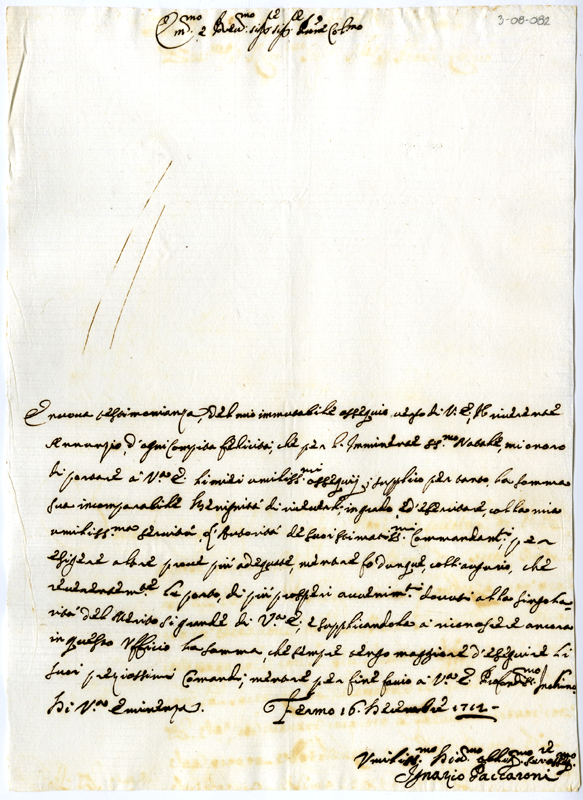 3-08-082
Em.mo e Rev.mo Sig.re Sig.re Pron.e Col.mo
È nuova testimonianza, del mio immutabile ossequio verso di V. E., il riverente
Annunzio, d'ogni compita felicità, che per l'Imminente SS.mo Natale, mi onoro
di portare à V.ra E. li miei umiliss.mi ossequij; supplico per tanto, la somma
sua incomparabile Benignità di
umiliss.ma servitù, l'Autorità de suoi stimatis.mi Commandam.ti, per
esigere altre prove più adeguate, mentre fò dunque, coll'augurio, che
reverentem.te le porto, di più prosperi avvenim.ti dovuti alla singola-
rità del Merito sì grande di V.ra E., e supplicandola a riconoscere ancora
in questo Ufficio la somma, che sempre tengo maggiore d'eseguire li
suoi preziosissimi Comandi; mentre per fine faccio à V.ra E. Profondiss.mo Inchino
Di V.ra Eminenza. Fermo 16. Decembre 1712-
Umiliss.mo Div.mo Obblig.mo Ser.re
Ignazio Paccaroni